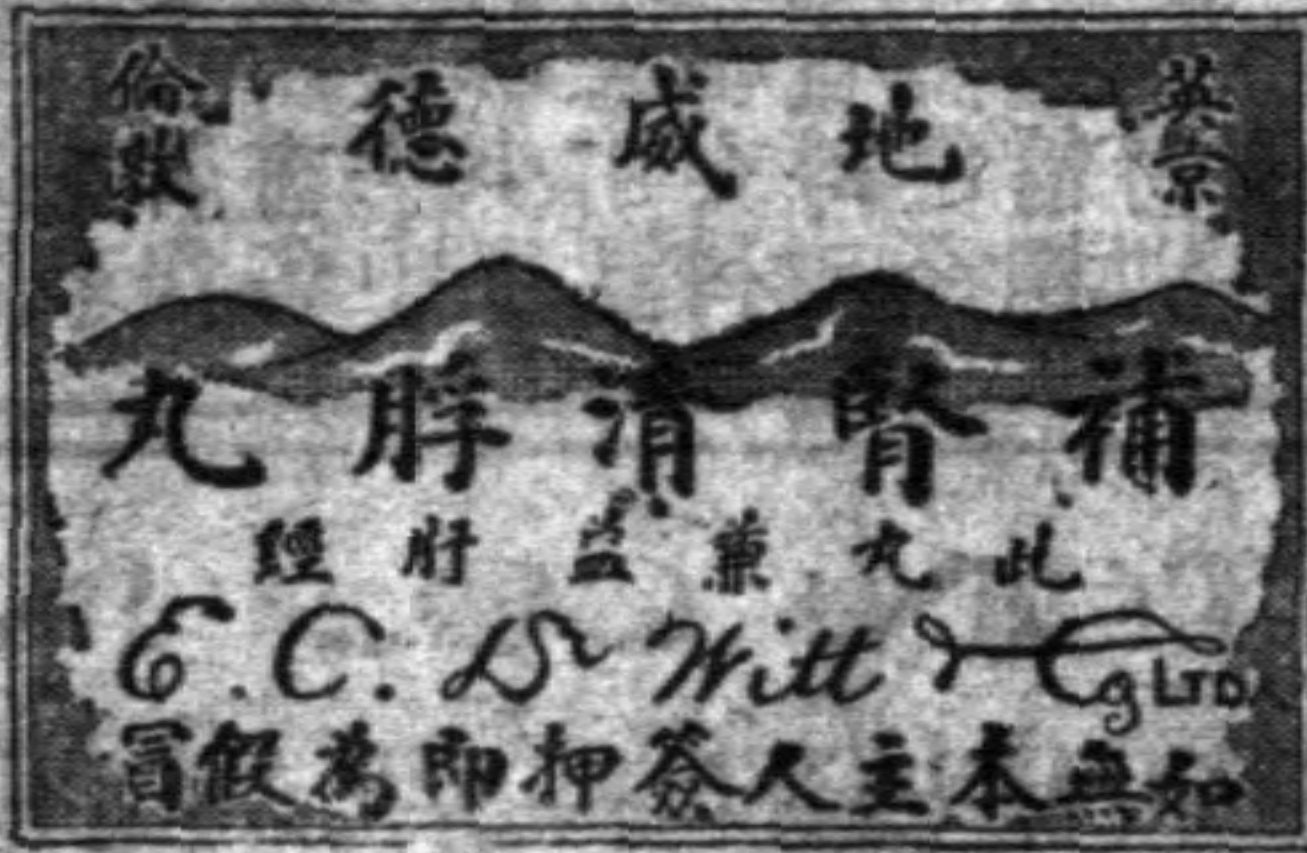 英京
地威德
倫敦
補腎清脬丸
此丸兼益肝經
E. C. De Witt & Co LTD
如無本主人簽押即為假冒